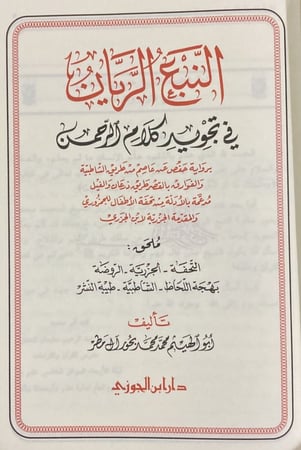 النبع الريان
في تجويد كلام الرحمن
برواية حفص عن عاصم من طريق الشاطبية
والفوارق بالقصر طريق زرعان والفيل
مدعمة بالأدلة من تحفة الأطفال للجمزوري
والمقدمة الجزرية لابن الجزري
ملحق :
التحفة - الجزرية - الروضة
بهجة اللحاظ - الشاطبية - طيبة النشر
تأليف
أبو الهيثم محمد محمد بحور آل مطر
دار ابن الجوزي